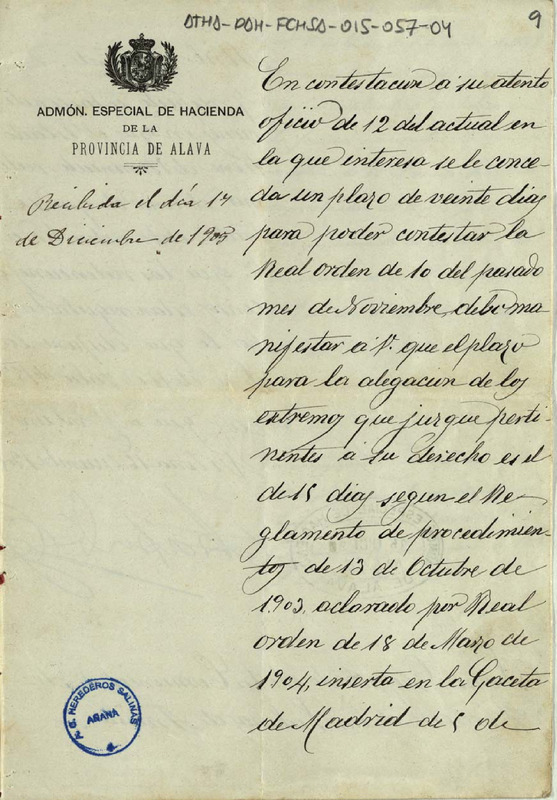 ATHA-DAH-FCHSA-015-057-04
9
ADMÓN. ESPECIAL DE HACIENDA
DE LA
PROVINCIA DE ALAVA
Recibida el día 17
de Diciembre de 1909
En contestacion a su atento
oficio de 12 del actual en
la que interesa se le conce-
da un plazo de veinte dias
para poder contestar la
Real orden de 10 del pasado
mes de Noviembre, debo ma
nifestar a V. que el plazo
para la alegacion de los
extremos que juzgue perti-
nentes a su derecho es el
de 15 dias segun el Re-
glamento de procedimien-
tos de 13 de Octubre de
1.903, aclarado por Real
orden de 18 de Marzo de
1904, inserta en la Gaceta
de Madrid de 5 de
F. S. HEREDEROS SALINAS
ARAÑA